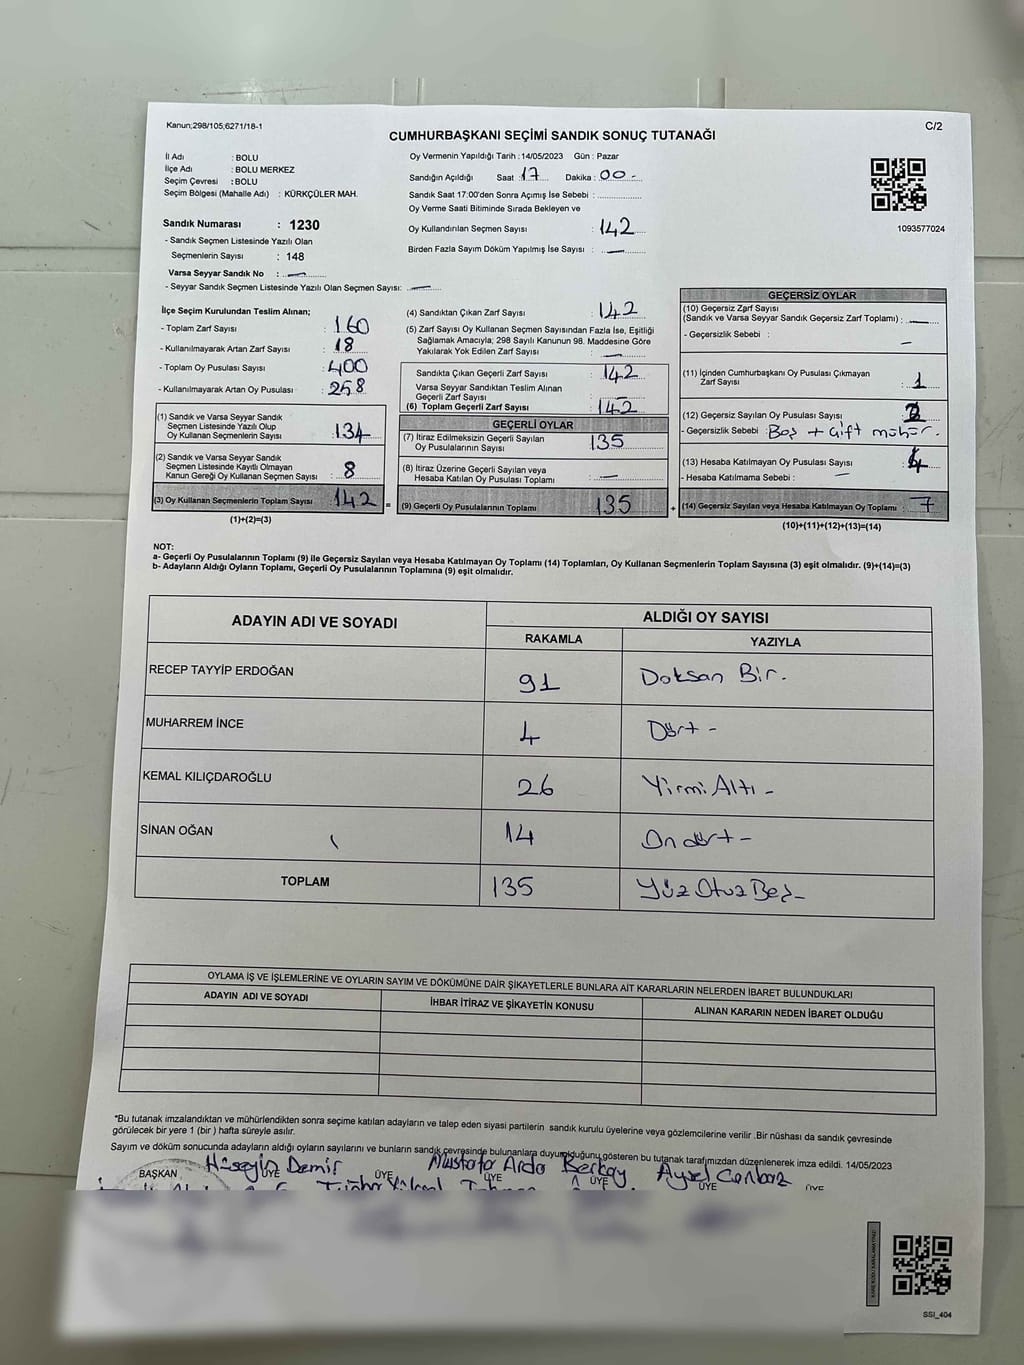 Kanun;298/105;6271/18-1
C/2
CUMHURBAŞKANI SEÇİMİ SANDIK SONUÇ TUTANAĞI
İl Adı : BOLU
İlçe Adı : BOLU MERKEZ
Seçim Çevresi : BOLU
Seçim Bölgesi (Mahalle Adı) : KÜRKÇÜLER MAH.
Sandık Numarası : 1230
- Sandık Seçmen Listesinde Yazılı Olan
Seçmenlerin Sayısı : 148
Varsa Seyyar Sandık No : —
- Seyyar Sandık Seçmen Listesinde Yazılı Olan Seçmen Sayısı: —
Oy Vermenin Yapıldığı Tarih : 14/05/2023 Gün : Pazar
Sandığın Açıldığı Saat : 17 Dakika : 00 -
Sandık Saat 17:00'den Sonra Açmış İse Sebebi :
Oy Verme Saati Bitiminde Sırada Bekleyen ve
Oy Kullandırılan Seçmen Sayısı : 142
Birden Fazla Sayım Döküm Yapılmış İse Sayısı : —
1093577024
İlçe Seçim Kurulundan Teslim Alınan;
- Toplam Zarf Sayısı : 160
- Kullanılmayarak Artan Zarf Sayısı : 18
- Toplam Oy Pusulası Sayısı : 400
- Kullanılmayarak Artan Oy Pusulası : 258
(1) Sandık ve Varsa Seyyar Sandık
Seçmen Listesinde Yazılı Olup
Oy Kullanan Seçmenlerin Sayısı : 134
(2) Sandık ve Varsa Seyyar Sandık
Seçmen Listesinde Kayıtlı Olmayan
Kanun Gereği Oy Kullanan Seçmen Sayısı : 8
(3) Oy Kullanan Seçmenlerin Toplam Sayısı : 142 =
(1)+(2)=(3)
(4) Sandıktan Çıkan Zarf Sayısı : 142
(5) Zarf Sayısı Oy Kullanan Seçmen Sayısından Fazla İse, Eşitliği
Sağlamak Amacıyla; 298 Sayılı Kanunun 98. Maddesine Göre
Yakılarak Yok Edilen Zarf Sayısı : —
Sandıkta Çıkan Geçerli Zarf Sayısı : 142
Varsa Seyyar Sandıktan Teslim Alınan
Geçerli Zarf Sayısı :
(6) Toplam Geçerli Zarf Sayısı : 142
GEÇERLİ OYLAR
(7) İtiraz Edilmeksizin Geçerli Sayılan
Oy Pusulalarının Sayısı : 135
(8) İtiraz Üzerine Geçerli Sayılan veya
Hesaba Katılan Oy Pusulası Toplamı : —
(9) Geçerli Oy Pusulalarının Toplamı : 135 +
GEÇERSİZ OYLAR
(10) Geçersiz Zarf Sayısı
(Sandık ve Varsa Seyyar Sandık Geçersiz Zarf Toplamı) : —
- Geçersizlik Sebebi : —
(11) İçinden Cumhurbaşkanı Oy Pusulası Çıkmayan
Zarf Sayısı : 1
(12) Geçersiz Sayılan Oy Pusulası Sayısı :
- Geçersizlik Sebebi : Boş + Çift mühür.
(13) Hesaba Katılmayan Oy Pusulası Sayısı :
- Hesaba Katılmama Sebebi : —
(14) Geçersiz Sayılan veya Hesaba Katılmayan Oy Toplamı : 7
(10)+(11)+(12)+(13)=(14)
NOT:
a- Geçerli Oy Pusulalarının Toplamı (9) ile Geçersiz Sayılan veya Hesaba Katılmayan Oy Toplamı (14) Toplamları, Oy Kullanan Seçmenlerin Toplam Sayısına (3) eşit olmalıdır. (9)+(14)=(3)
b- Adayların Aldığı Oyların Toplamı, Geçerli Oy Pusulalarının Toplamına (9) eşit olmalıdır.
ADAYIN ADI VE SOYADI ALDIĞI OY SAYISI
RAKAMLA YAZIYLA
RECEP TAYYİP ERDOĞAN 91 Doksan Bir.
MUHARREM İNCE 4 Dört -
KEMAL KILIÇDAROĞLU 26 Yirmi Altı -
SİNAN OĞAN 14 On dört -
TOPLAM 135 Yüz Otuz Beş -
OYLAMA İŞ VE İŞLEMLERİNE VE OYLARIN SAYIM VE DÖKÜMÜNE DAİR ŞİKAYETLERLE BUNLARA AİT KARARLARIN NELERDEN İBARET BULUNDUKLARI
ADAYIN ADI VE SOYADI İHBAR İTİRAZ VE ŞİKAYETİN KONUSU ALINAN KARARIN NEDEN İBARET OLDUĞU
*Bu tutanak imzalandıktan ve mühürlendikten sonra seçime katılan adayların ve talep eden siyasi partilerin sandık kurulu üyelerine veya gözlemcilerine verilir .Bir nüshası da sandık çevresinde
görülecek bir yere 1 (bir ) hafta süreyle asılır.
Sayım ve döküm sonucunda adayların aldığı oyların sayılarını ve bunların sandık çevresinde bulunanlara duyurulduğunu gösteren bu tutanak tarafımızdan düzenlenerek imza edildi. 14/05/2023
Hüseyin Demir Mustafa Arda Berkay Aysel
BAŞKAN ÜYE ÜYE ÜYE ÜYE ÜYE ÜYE
SSI_404